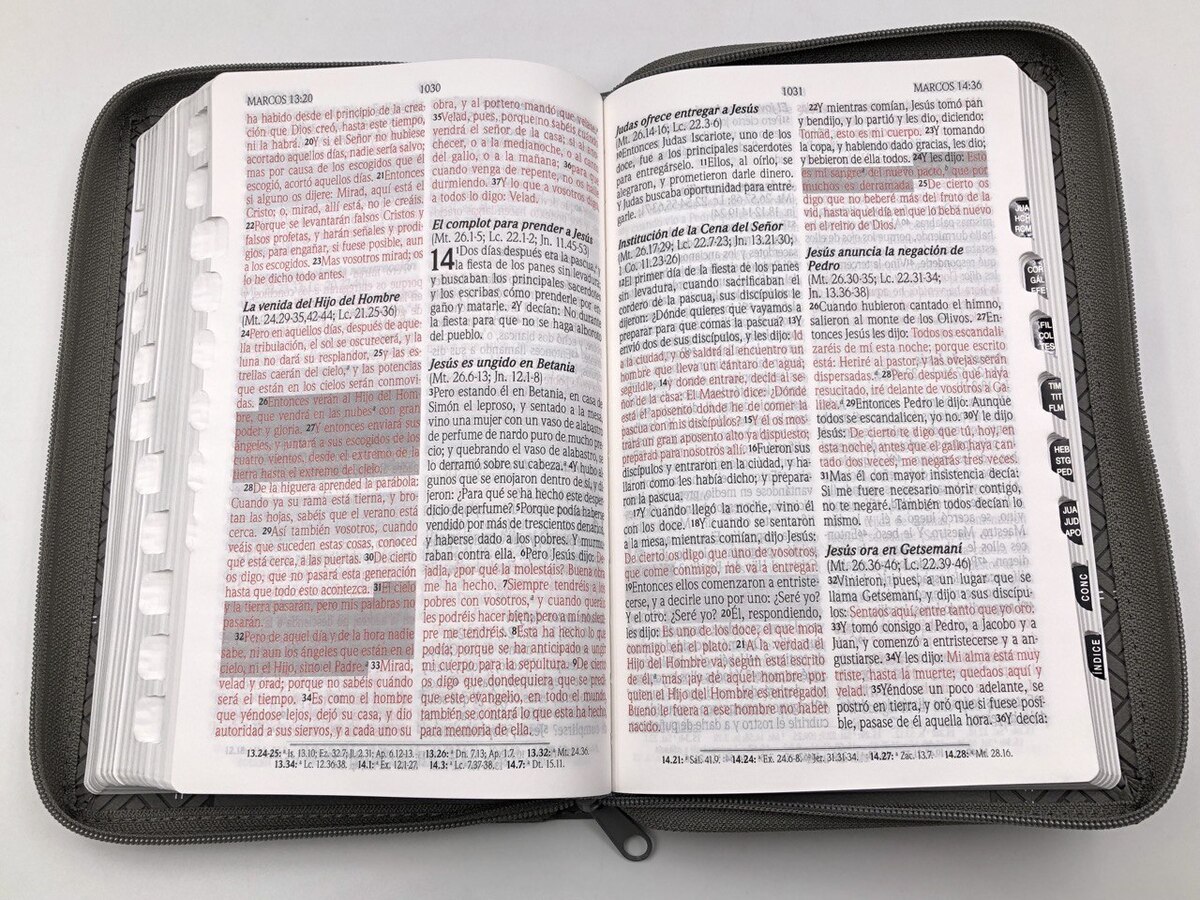 MARCOS 13:20
1030
ha habido desde el principio de la crea-
ción que Dios creó, hasta este tiempo,
ni la habrá. 20Y si el Señor no hubiese
acortado aquellos días, nadie sería salvo;
mas por causa de los escogidos que él
escogió, acortó aquellos días. 21Entonces
si alguno os dijere: Mirad, aquí está el
Cristo; o, mirad, allí está, no le creáis.
22Porque se levantarán falsos Cristos y
falsos profetas, y harán señales y prodi-
gios, para engañar, si fuese posible, aun
a los escogidos. 23Mas vosotros mirad; os
lo he dicho todo antes.
La venida del Hijo del Hombre
(Mt. 24.29-35,42-44; Lc. 21.25-36)
24Pero en aquellos días, después de aque-
lla tribulación, el sol se oscurecerá, y la
luna no dará su resplandor, 25y las es-
trellas caerán del cielo, y las potencias
que están en los cielos serán conmovi-
das. 26Entonces verán al Hijo del Hom-
bre, que vendrá en las nubes con gran
poder y gloria. 27Y entonces enviará sus
ángeles, y juntará a sus escogidos de los
cuatro vientos, desde el extremo de la
tierra hasta el extremo del cielo.
28De la higuera aprended la parábola:
Cuando ya su rama está tierna, y bro-
tan las hojas, sabéis que el verano está
cerca. 29Así también vosotros, cuando
veáis que suceden estas cosas, conoced
que está cerca, a las puertas. 30De cierto
os digo, que no pasará esta generación
hasta que todo esto acontezca. 31El cielo
y la tierra pasarán, pero mis palabras no
pasarán.
32Pero de aquel día y de la hora nadie
sabe, ni aun los ángeles que están en el
cielo, ni el Hijo, sino el Padre. 33Mirad,
velad y orad; porque no sabéis cuándo
será el tiempo. 34Es como el hombre
que yéndose lejos, dejó su casa, y dio
autoridad a sus siervos, y a cada uno su
obra, y al portero mandó que velase.
35Velad, pues, porque no sabéis cuándo
vendrá el señor de la casa; si al ano-
checer, o a la medianoche, o al canto
del gallo, o a la mañana; 36para que
cuando venga de repente, no os halle
durmiendo. 37Y lo que a vosotros digo,
a todos lo digo: Velad.
El complot para prender a Jesús
(Mt. 26.1-5; Lc. 22.1-2; Jn. 11.45-53)
14 1Dos días después era la pascua, y
la fiesta de los panes sin levadura;
y buscaban los principales sacerdotes
y los escribas cómo prenderle por en-
gaño y matarle. 2Y decían: No durante
la fiesta para que no se haga alboroto
del pueblo.
Jesús es ungido en Betania
(Mt. 26.6-13; Jn. 12.1-8)
3Pero estando él en Betania, en casa de
Simón el leproso, y sentado a la mesa,
vino una mujer con un vaso de alabastro
de perfume de nardo puro de mucho pre-
cio; y quebrando el vaso de alabastro, se
lo derramó sobre su cabeza. 4Y hubo al-
gunos que se enojaron dentro de sí, y di-
jeron: ¿Para qué se ha hecho este desper-
dicio de perfume? 5Porque podía haberse
vendido por más de trescientos denarios,
y haberse dado a los pobres. Y murmu-
raban contra ella. 6Pero Jesús dijo: De-
jadla, ¿por qué la molestáis? Buena obra
me ha hecho. 7Siempre tendréis a los
pobres con vosotros, y cuando queráis
les podréis hacer bien; pero a mí no siem-
pre me tendréis. 8Esta ha hecho lo que
podía; porque se ha anticipado a ungir
mi cuerpo para la sepultura. 9De cierto
os digo que dondequiera que se predi-
que este evangelio, en todo el mundo,
también se contará lo que esta ha hecho,
para memoria de ella.
13.24-25: Is. 13.10; Ez. 32.7; Jl. 2.31; Ap. 6.12-13. 13.26: Dn. 7.13; Ap. 1.7. 13.32: Mt. 24.36.
13.34: Lc. 12.36-38. 14.1: Ex. 12.1-27. 14.3: Lc. 7.37-38. 14.7: Dt. 15.11.
1031
MARCOS 14:36
Judas ofrece entregar a Jesús
(Mt. 26.14-16; Lc. 22.3-6)
10Entonces Judas Iscariote, uno de los
doce, fue a los principales sacerdotes
para entregárselo. 11Ellos, al oírlo, se
alegraron, y prometieron darle dinero.
Y Judas buscaba oportunidad para entre-
garle.
Institución de la Cena del Señor
(Mt. 26.17-29; Lc. 22.7-23; Jn. 13.21-30;
1 Co. 11.23-26)
12El primer día de la fiesta de los panes
sin levadura, cuando sacrificaban el
cordero de la pascua, sus discípulos le
dijeron: ¿Dónde quieres que vayamos a
preparar para que comas la pascua? 13Y
envió dos de sus discípulos, y les dijo: Id
a la ciudad, y os saldrá al encuentro un
hombre que lleva un cántaro de agua;
seguidle, 14y donde entrare, decid al se-
ñor de la casa: El Maestro dice: ¿Dónde
está el aposento donde he de comer la
pascua con mis discípulos? 15Y él os mos-
trará un gran aposento alto ya dispuesto;
preparad para nosotros allí. 16Fueron sus
discípulos y entraron en la ciudad, y ha-
llaron como les había dicho; y prepara-
ron la pascua.
17Y cuando llegó la noche, vino él
con los doce. 18Y cuando se sentaron
a la mesa, mientras comían, dijo Jesús:
De cierto os digo que uno de vosotros,
que come conmigo, me va a entregar.
19Entonces ellos comenzaron a entriste-
cerse, y a decirle uno por uno: ¿Seré yo?
Y el otro: ¿Seré yo? 20Él, respondiendo,
les dijo: Es uno de los doce, el que moja
conmigo en el plato. 21A la verdad el
Hijo del Hombre va, según está escrito
de él, mas ¡ay de aquel hombre por
quien el Hijo del Hombre es entregado!
Bueno le fuera a ese hombre no haber
nacido.
22Y mientras comían, Jesús tomó pan
y bendijo, y lo partió y les dio, diciendo:
Tomad, esto es mi cuerpo. 23Y tomando
la copa, y habiendo dado gracias, les dio;
y bebieron de ella todos. 24Y les dijo: Esto
es mi sangre del nuevo pacto, que por
muchos es derramada. 25De cierto os
digo que no beberé más del fruto de la
vid, hasta aquel día en que lo beba nuevo
en el reino de Dios.
Jesús anuncia la negación de
Pedro
(Mt. 26.30-35; Lc. 22.31-34;
Jn. 13.36-38)
26Cuando hubieron cantado el himno,
salieron al monte de los Olivos. 27En-
tonces Jesús les dijo: Todos os escandali-
zaréis de mí esta noche; porque escrito
está: Heriré al pastor, y las ovejas serán
dispersadas. 28Pero después que haya
resucitado, iré delante de vosotros a Ga-
lilea. 29Entonces Pedro le dijo: Aunque
todos se escandalicen, yo no. 30Y le dijo
Jesús: De cierto te digo que tú, hoy, en
esta noche, antes que el gallo haya can-
tado dos veces, me negarás tres veces.
31Mas él con mayor insistencia decía:
Si me fuere necesario morir contigo,
no te negaré. También todos decían lo
mismo.
Jesús ora en Getsemaní
(Mt. 26.36-46; Lc. 22.39-46)
32Vinieron, pues, a un lugar que se
llama Getsemaní, y dijo a sus discípu-
los: Sentaos aquí, entre tanto que yo oro.
33Y tomó consigo a Pedro, a Jacobo y a
Juan, y comenzó a entristecerse y a an-
gustiarse. 34Y les dijo: Mi alma está muy
triste, hasta la muerte; quedaos aquí y
velad. 35Yéndose un poco adelante, se
postró en tierra, y oró que si fuese posi-
ble, pasase de él aquella hora. 36Y decía:
14.21: Sal. 41.9. 14.24: Ex. 24.6-8. Jer. 31.31-34. 14.27: Zac. 13.7. 14.28: Mt. 28.16.
JUA
HCH
ROM
COR
GÁL
EFE
FIL
COL
TES
TIM
TIT
FLM
HEB
STG
PED
JUA
JUD
APO
CONC
ÍNDICE